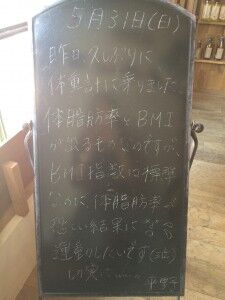 5月31日(日)
昨日、久しぶりに
体重計に乗りました。
体脂肪率とBMI
が出るものなのですが、
BMI指数は標準
なのに、体脂肪率が
悲しい結果に
運動したいです
切実に
平野